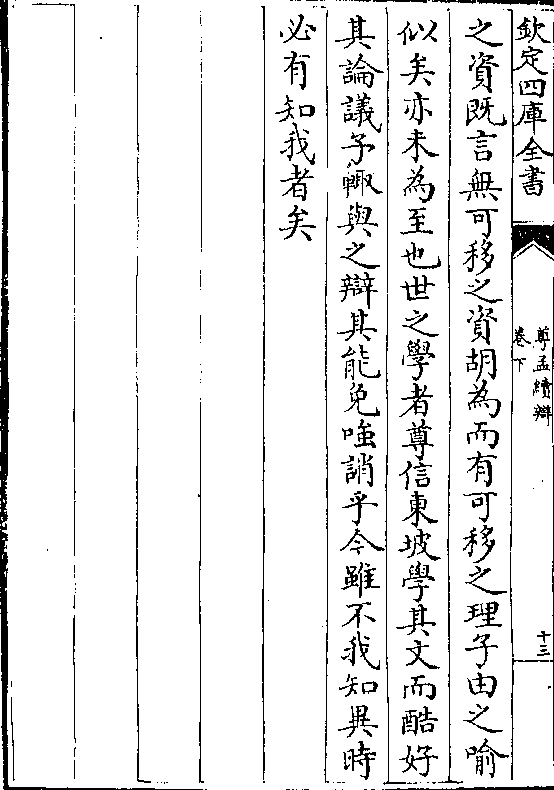 欽定四庫全書
尊孟續辯
卷下
十三
之資既言無可移之資胡為而有可移之理子由之喻
似矣亦未為至也世之學者尊信東坡學其文而酷好
其論議予輙與之辯其能免嗤誚乎今雖不我知異時
必有知我者矣